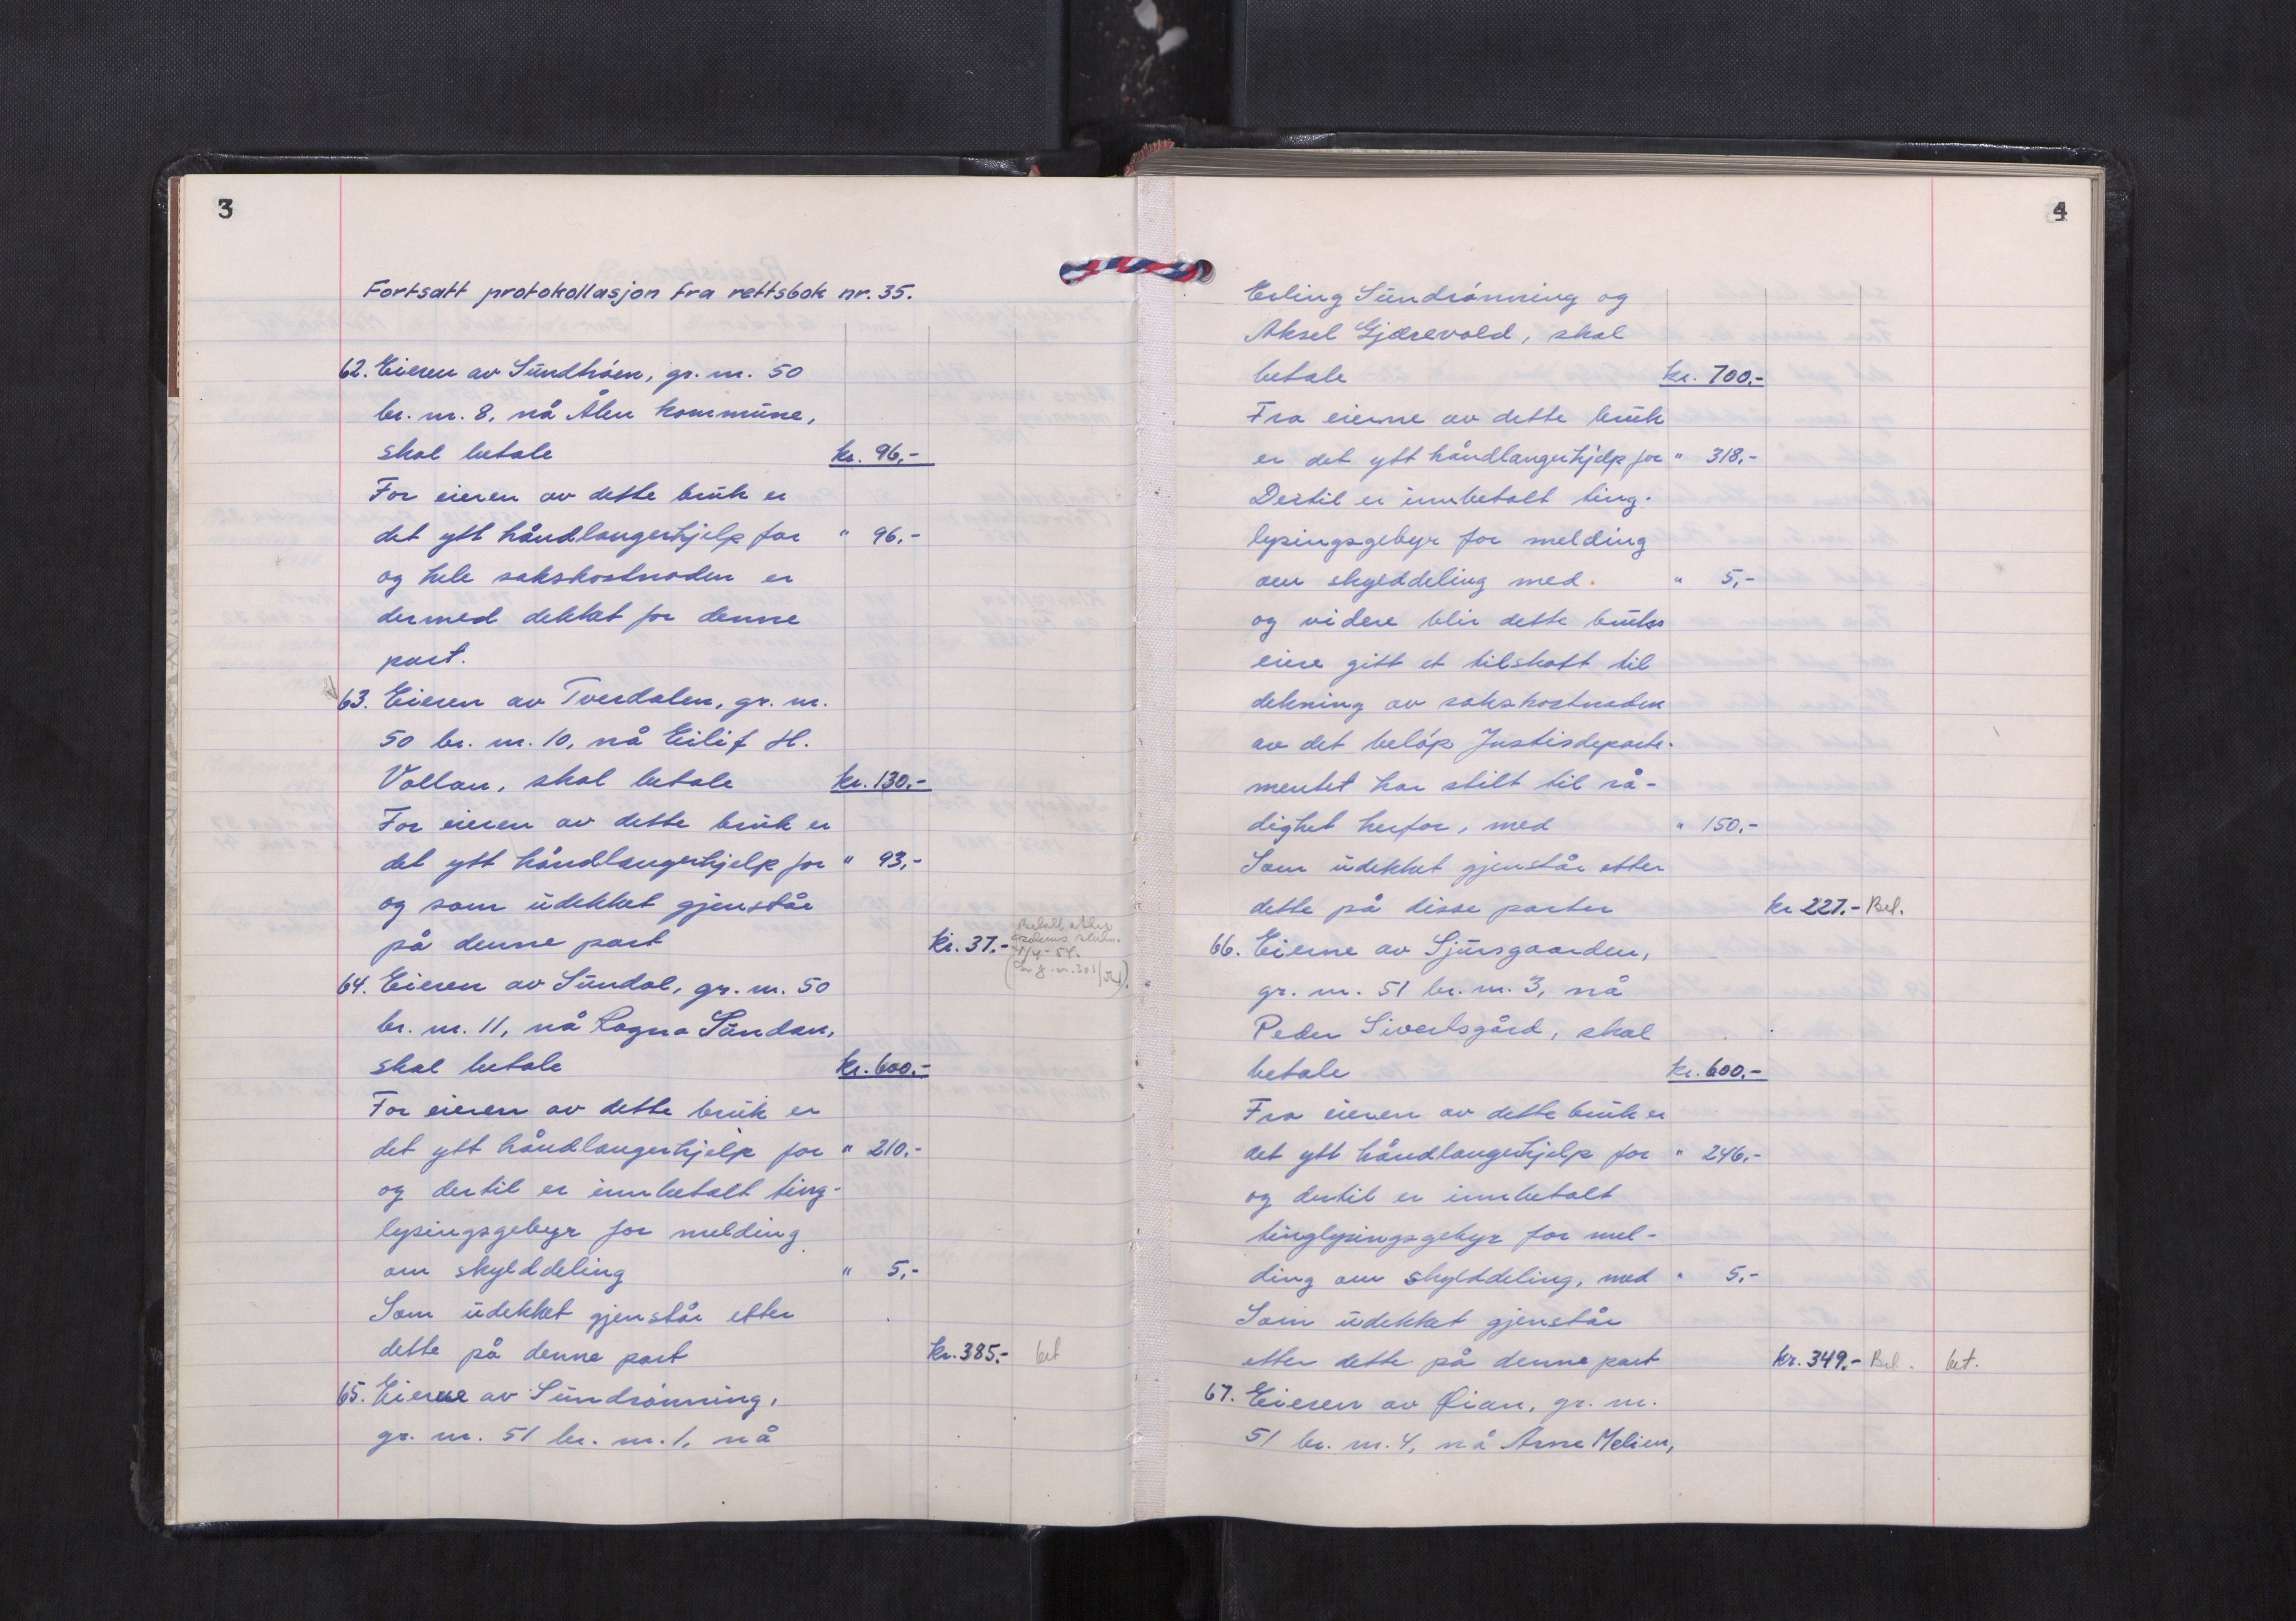 3
Fortsatt protokollasjon fra rettsbok nr. 35.
62. Eieren av Sundhøen, gr. nr. 50
br. nr. 8, nå Ålen kommune,
skal betale kr. 96,-
For eieren av dette bruk er
det ytt håndlangerhjelp for " 96,-
og hele sakskostnaden er
dermed dekket for denne
part.
63. Eieren av Tverdalen, gr. nr.
50 br. nr. 10, nå Eilif H.
Vollan, skal betale kr. 130,-
For eieren av dette bruk er
det ytt håndlangerhjelp for " 93,-
og som udekket gjenstår
på denne part kr. 37,-
64. Eieren av Sundal, gr. nr. 50
br. nr. 11, nå Ragna Sundan,
skal betale kr. 600,-
For eieren av dette bruk er
det ytt håndlangerhjelp for " 210,-
og dertil er innbetalt ting-
lysingsgebyr for melding
om skylddeling " 5,-
Som udekket gjenstår etter
dette på denne part kr. 385,- bet
65. Eierne av Sundrønning,
gr. nr. 51 br. nr. 1, nå
4
Erling Sundrønning og
Aksel Gjærevold, skal
betale kr. 700,-
Fra eierne av dette bruk
er det ytt håndlangerhjelp for " 318,-
Dertil er innbetalt ting-
lysingsgebyr for melding
om skylddeling med. " 5,-
og videre blir dette bruks
eiere gitt et tilskott til
dekning av sakskostnaden
av det beløp Justisdeparte-
mentet har stilt til rå-
dighet herfor, med " 150,-
Som udekket gjenstår etter
dette på disse parter kr 227,- Bet.
66. Eierne av Sjursgaarden,
gr. nr. 51 br. nr. 3, nå
Peder Sivertsgård, skal
betale kr. 600,-
Fra eieren av dette bruk er
det ytt håndlangerhjelp for " 246,-
og dertil er innbetalt
tinglysingsgebyr for mel-
ding om skylddeling, med " 5,-
Som udekket gjenstår
etter dette på denne part kr. 349,- Bet. bet.
67. Eieren av Øian, gr. nr.
51 br. nr. 4, nå Arne Melien,